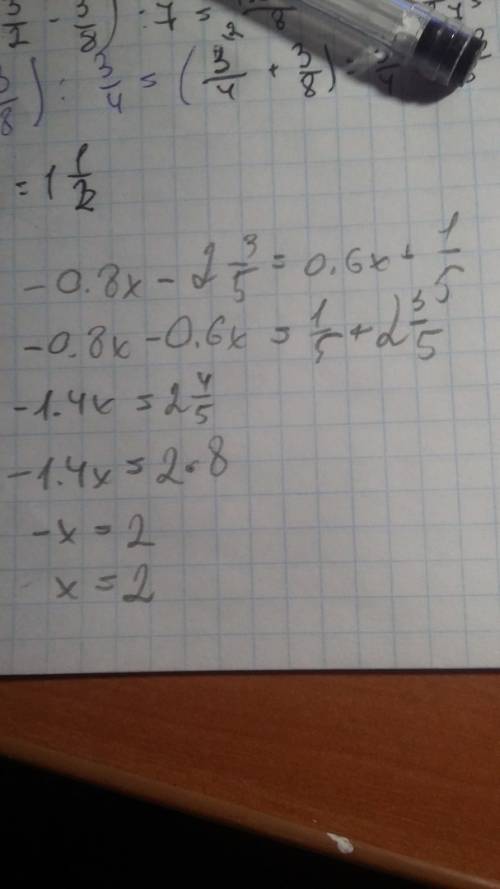 3/2 - 3/8) : 7 =
3/8) : 3/4 = (3/4 + 3/8) :
= 1 1/2
-0.8x - 2 3/5 = 0.6x + 1/5
-0.8x - 0.6x = 1/5 + 2 3/5
-1.4x = 2 4/5
-1.4x = 2.8
-x = 2
x = 2